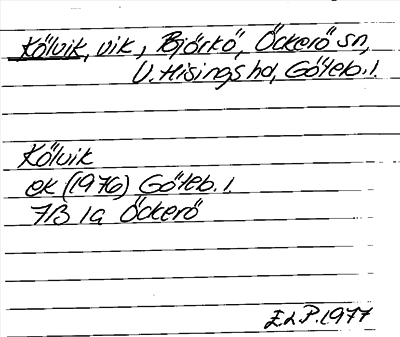 Kölvik, vik, Björkö, Öckerö sn,
V. Hisings hd, Göteb. l.
Kölvik
ek (1976) Göteb. l.
7B 1a Öckerö
E.L.P. 1977